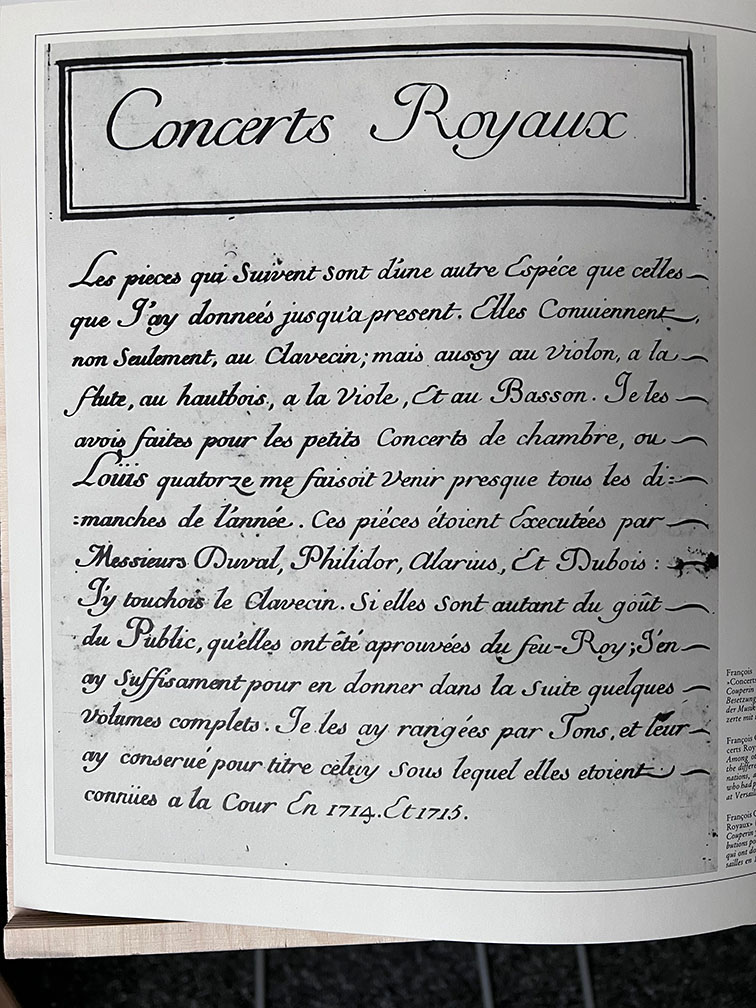 Concerts Royaux
Les pieces qui Suivent sont d'une autre Espéce que celles
que J'ay donneés jusqu'a present. Elles Conuiennent,
non Seulement, au Clavecin; mais aussy au Violon, a la
flute, au hautbois, a la Viole, Et au Basson. Je les
avois faites pour les petits Concerts de chambre, ou
Loüis quatorze me faisoit Venir presque tous les di=
=manches de l'année. Ces piéces étoient Executées par
Messieurs Duval, Philidor, Alarius, Et Dubois:
J'y touchois le Clavecin. Si elles sont autant du goût
du Public, qu'elles ont été aprouvées du feu-Roy; J'en
ay Suffisament pour en donner dans la Suite quelques
Volumes complets. Je les ay rangées par Tons, et leur
ay conserué pour titre céluy Sous lequel elles etoient
connües a la Cour En 1714. Et 1715.
François
«Concerts
Couperin
Besetzung
der Musik
zerte mit
François C
certs Roy
Among ot
the differe
nations, a
who had p
at Versail
François C
Royaux»
Couperin
butions po
qui ont do
sailles en